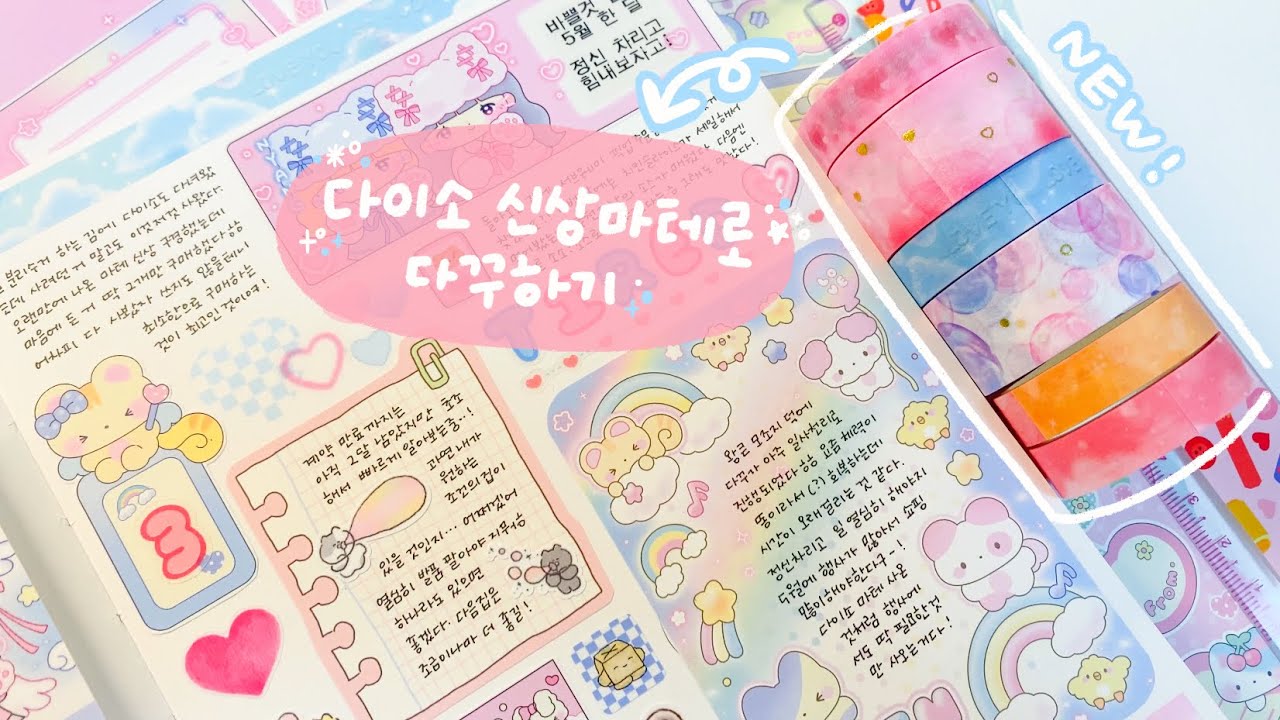 바쁠것
5월 한 달
정신 차리고
힘내보자고!
NEW!
다이소 신상마테로
다꾸하기
분리수거 하는 김에 다이소도 다녀왔
는데 사려던 거 말고도 이것저것 사왔다.
오랜만에 나온 마테 신상 구경했는데
마음에 든 거 딱 2개만 구매했다
어차피 다 사봤자 쓰지도 않을테니
최소한으로 구매하는
것이 최고인 것이여!
3
계약 만료까지는
아직 2달 남았지만 호호
해서 빠르게 알아보는중..!
과연 내가
원하는
조건의 집이
있을 것인지... 어쩌겠어
열심히 발품 팔아야지
하나라도 있으면
좋겠다. 다음집은
조금이나마 더 좋길!
LOVE
왕큰 모조지 덕에
다꾸가 아주 일사천리로
진행되었다 요즘 체력이
똥이라서 (?) 회복하는데
시간이 오래걸리는 것 같다.
정신차리고 일 열심히 해야지
5월에 행사가 많아서 쇼핑
많이해야한다구~!
다이소 마테 사온
것처럼 행사에
서도 딱 필요한것
만 사오는거다!
From.